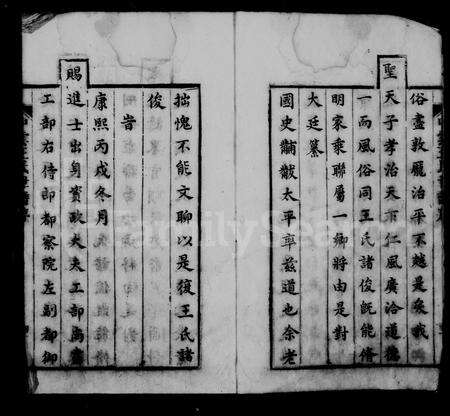 俗盡敦龐治平不越是矣我
聖天子孝治天下仁風廣洽道德
一而風俗同王氏諸俊旣能脩
明家乘聯屬一鄉將由是對
大廷纂
國史黼黻太平率茲道也余老
拙愧不能文聊以是復王氏諸
俊
旹
康熙丙戌冬月
賜進士出身資政大夫工部
工部右侍郎都察院左副都御
FamilySearch